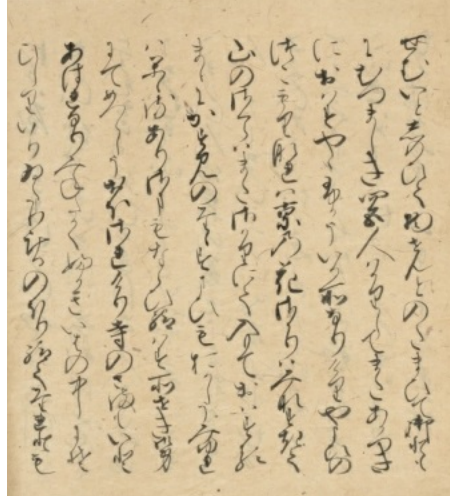 せむいと志のひて物せんとのたまひて御とも
にむつましき四五人はかりしてまたあかつき
におはすやゝふかういる所なりけりやよひの
つこもりなれは京の花さかりはみなすきて
山のさくらはまたさかりにて入もておはする
まゝにかすみのたゝすまひもおかしうみゆれ
はかゝるありさまもならひ給はす所せき御身
にてめつらしうおほされけり寺のさまもいと
あはれなりみねたかくふかきいはの中にそ
ひしりいりゐたりけるのほり給てたれとも